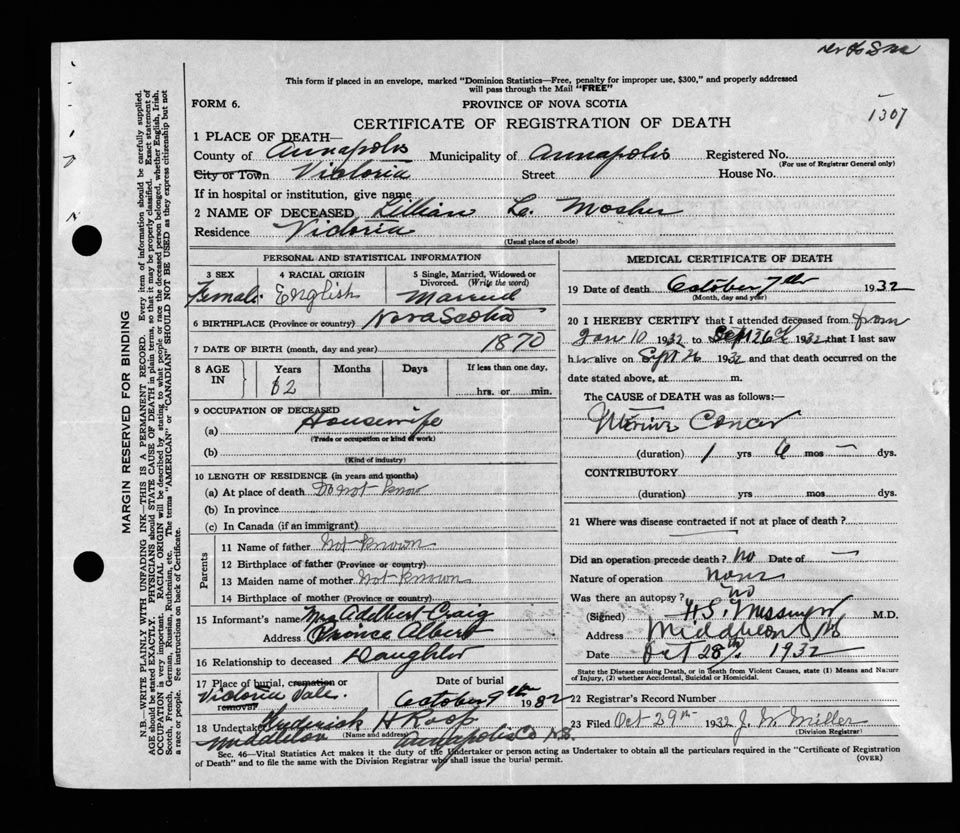 This form if placed in an envelope, marked "Dominion Statistics—Free, penalty for improper use, $300," and properly addressed
will pass through the Mail "FREE"
FORM 6.
PROVINCE OF NOVA SCOTIA
1307
CERTIFICATE OF REGISTRATION OF DEATH
1 PLACE OF DEATH—
County of Annapolis Municipality of Annapolis Registered No.
(For use of Registrar General only)
City or Town Victoria Street House No.
If in hospital or institution, give name
2 NAME OF DECEASED Lillian L. Mosher
Residence Victoria
(Usual place of abode)
PERSONAL AND STATISTICAL INFORMATION
3 SEX 4 RACIAL ORIGIN 5 Single, Married, Widowed or Divorced. (Write the word)
Female. English Married
6 BIRTHPLACE (Province or country) Nova Scotia
7 DATE OF BIRTH (month, day and year) 1870
8 AGE IN Years Months Days If less than one day,
62 hrs. or min.
9 OCCUPATION OF DECEASED
(a) Housewife
(Trade or occupation or kind of work)
(b)
(Kind of industry)
10 LENGTH OF RESIDENCE (in years and months)
(a) At place of death Do not know
(b) In province
(c) In Canada (if an immigrant)
Parents
11 Name of father Not Known
12 Birthplace of father (Province or country)
13 Maiden name of mother Not Known
14 Birthplace of mother (Province or country)
15 Informant's name Mrs Adelbert Craig
Address Prince Albert
16 Relationship to deceased Daughter
17 Place of burial, cremation or removal Date of burial
Victoria Vale. October 9th 1932
18 Undertaker Roderick H Roop
(Name and address)
Middleton Annapolis Co N.S.
MEDICAL CERTIFICATE OF DEATH
19 Date of death October 7th 1932
(Month, day and year)
20 I HEREBY CERTIFY that I attended deceased from from
Jan 10 1932 to Sept 26th 1932 that I last saw
h alive on Sept 26 1932 and that death occurred on the
date stated above, at m.
The CAUSE of DEATH was as follows:—
Uterine Cancer
(duration) 1 yrs 6 mos — dys.
CONTRIBUTORY
(duration) yrs mos dys.
21 Where was disease contracted if not at place of death?
Did an operation precede death? No Date of —
Nature of operation None
Was there an autopsy? No
(Signed) H.S. Messenger M.D.
Address Middleton NS
Date Oct 28th 1932
State the Disease causing Death, or in death from Violent Causes, state (1) Means and Nature
of Injury, (2) whether Accidental, Suicidal or Homicidal.
22 Registrar's Record Number
23 Filed Oct 29th 1932 J. M. Miller
(Division Registrar)
Sec. 46—Vital Statistics Act makes it the duty of the Undertaker or person acting as Undertaker to obtain all the particulars required in the "Certificate of Registration
of Death" and to file the same with the Division Registrar who shall issue the burial permit.
(OVER)
MARGIN RESERVED FOR BINDING
N.B.—WRITE PLAINLY WITH UNFADING INK—THIS IS A PERMANENT RECORD. Every item of information should be carefully supplied.
AGE should be stated EXACTLY. PHYSICIANS should STATE CAUSE OF DEATH in plain terms, so that it may be properly classified. Exact statement of
OCCUPATION is very important. RACIAL ORIGIN will be described by stating to what people or race the deceased person belonged, whether English, Irish,
Scotch, French, German, Russian, Ruthenian, etc. The terms "AMERICAN" or "CANADIAN" SHOULD NOT BE USED as they express citizenship but not
a race or people. See instructions on back of Certificate.